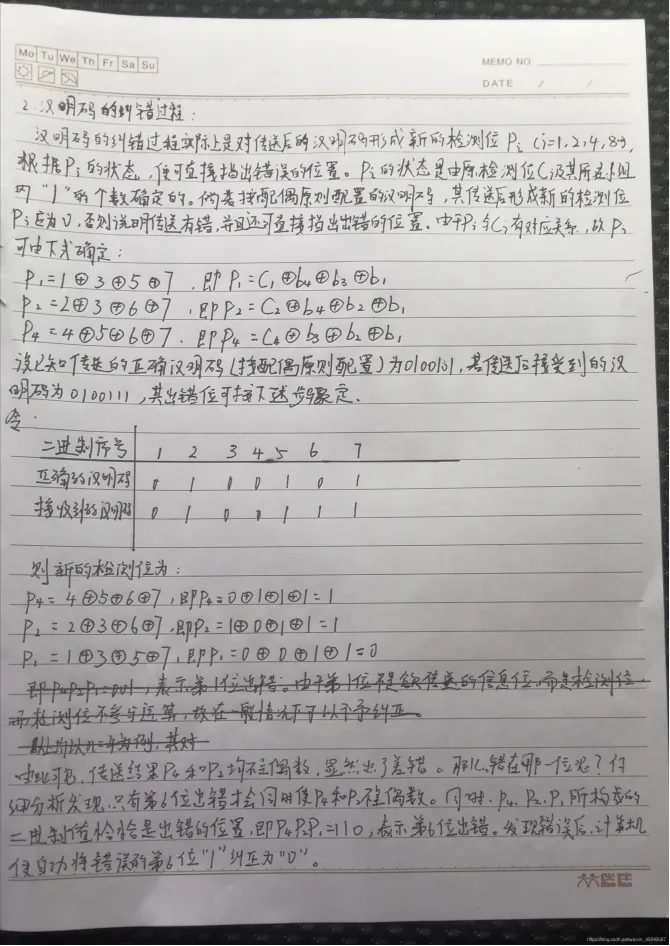 Mo Tu We Th Fr Sa Su
MEMO NO.
DATE / /
2.汉明码的纠错过程:
汉明码的纠错过程实际上是对传送后的汉明码形成新的检测位Pi(i=1,2,4,8…),
根据Pi的状态,便可直接指出错误的位置。Pi的状态是由原检测位Ci及其所在小组
内"1"的个数确定的。倘若按配偶原则配置的汉明码,其传送后形成新的检测位
Pi应为0,否则说明传送有错,并且还可直接指出出错的位置。由于Pi与Ci有对应关系,故Pi
可由下式确定:
P1=1⊕3⊕5⊕7,即P1=C1⊕b4⊕b3⊕b1
P2=2⊕3⊕6⊕7,即P2=C2⊕b4⊕b2⊕b1
P4=4⊕5⊕6⊕7.即P4=C4⊕b3⊕b2⊕b1
设已知传送的正确汉明码(按配偶原则配置)为0100101,其传送后接受到的汉
明码为0100111,其出错位可按下述步骤定.
令.
二进制序号 1 2 3 4 5 6 7
正确的汉明码 0 1 0 0 1 0 1
接收到的汉明码 0 1 0 0 1 1 1
则新的检测位为:
P4=4⊕5⊕6⊕7,即P4=0⊕1⊕1⊕1=1
P2=2⊕3⊕6⊕7,即P2=1⊕0⊕1⊕1=1
P1=1⊕3⊕5⊕7,即P1=0⊕0⊕1⊕1=0
即P4P2P1=001,表示第1位出错。由于第1位不是欲传送的信息位,而是检测位
而检测位不参与运算,故在一般情况下可以不予纠正。
以上均以n=4为例,其对
由此可见,传送结果P4和P2均不是偶数,显然出了差错。那么,错在哪一位呢?仔
细分析发现,只有第6位出错才会同时使P4和P2非偶数。同时,P4、P2、P1所构成的
二进制值恰恰是出错的位置,即P4P2P1=110,表示第6位出错。发现错误后,计算机
便自动将错误的第6位"1"纠正为"0"。